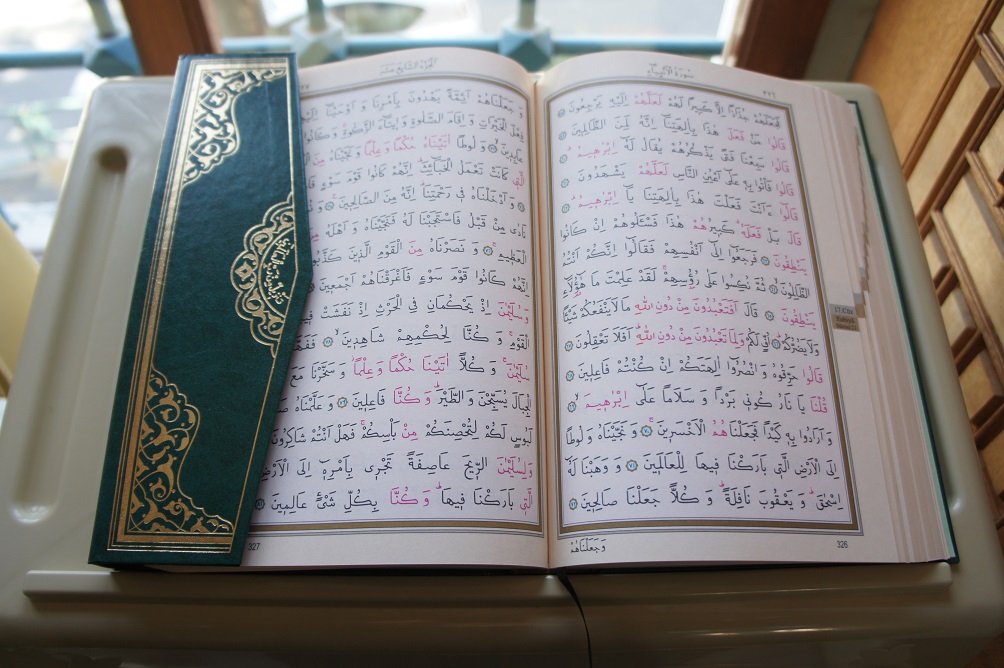 سُورَةُ الْاَنْبِيَاءِ
٣٢٦
فَجَعَلَهُمْ جُذَاذًا اِلَّا كَبِيرًا لَهُمْ لَعَلَّهُمْ اِلَيْهِ يَرْجِعُونَ ﴿٥٨﴾
قَالُوا مَنْ فَعَلَ هٰذَا بِاٰلِهَتِنَٓا اِنَّهُ لَمِنَ الظَّالِمِينَ ﴿٥٩﴾
قَالُوا سَمِعْنَا فَتًى يَذْكُرُهُمْ يُقَالُ لَهُٓ اِبْرٰهِيمُ ﴿٦٠﴾
قَالُوا فَأْتُوا بِهِ عَلٰٓى اَعْيُنِ النَّاسِ لَعَلَّهُمْ يَشْهَدُونَ ﴿٦١﴾
قَالُٓوا ءَاَنْتَ فَعَلْتَ هٰذَا بِاٰلِهَتِنَا يَٓا اِبْرٰهِيمُ ﴿٦٢﴾
قَالَ بَلْ فَعَلَهُ كَبِيرُهُمْ هٰذَا فَسْـَٔلُوهُمْ اِنْ كَانُوا
يَنْطِقُونَ ﴿٦٣﴾ فَرَجَعُٓوا اِلٰٓى اَنْفُسِهِمْ فَقَالُٓوا اِنَّكُمْ اَنْتُمُ
الظَّالِمُونَ ﴿٦٤﴾ ثُمَّ نُكِسُوا عَلٰى رُؤُ۫سِهِمْ لَقَدْ عَلِمْتَ مَا هٰٓؤُ۬لَٓاءِ
يَنْطِقُونَ ﴿٦٥﴾ قَالَ اَفَتَعْبُدُونَ مِنْ دُونِ اللّٰهِ مَا لَا يَنْفَعُكُمْ شَيْـًٔا
وَلَا يَضُرُّكُمْ ﴿٦٦﴾ اُفٍّ لَكُمْ وَلِمَا تَعْبُدُونَ مِنْ دُونِ اللّٰهِ اَفَلَا تَعْقِلُونَ ﴿٦٧﴾
قَالُوا حَرِّقُوهُ وَانْصُرُٓوا اٰلِهَتَكُمْ اِنْ كُنْتُمْ فَاعِلِينَ ﴿٦٨﴾
قُلْنَا يَا نَارُ كُونِي بَرْدًا وَسَلَامًا عَلٰٓى اِبْرٰهِيمَ ﴿٦٩﴾
وَاَرَادُوا بِهِ كَيْدًا فَجَعَلْنَاهُمُ الْاَخْسَرِينَ ﴿٧٠﴾ وَنَجَّيْنَاهُ وَلُوطًا
اِلَى الْاَرْضِ الَّتِي بَارَكْنَا فِيهَا لِلْعَالَمِينَ ﴿٧١﴾ وَوَهَبْنَا لَهُٓ
اِسْحٰقَ وَيَعْقُوبَ نَافِلَةً وَكُلًّا جَعَلْنَا صَالِحِينَ ﴿٧٢﴾
وَجَعَلْنَاهُمْ
326
اَلْجُزْءُ السَّابِعَ عَشَرَ
وَجَعَلْنَاهُمْ اَئِمَّةً يَهْدُونَ بِاَمْرِنَا وَاَوْحَيْنَٓا
فِعْلَ الْخَيْرَاتِ وَاِقَامَ الصَّلٰوةِ وَاِيتَٓاءَ الزَّكٰوةِ وَكَانُوا
عَابِدِينَ ﴿٧٣﴾ وَلُوطًا اٰتَيْنَاهُ حُكْمًا وَعِلْمًا وَنَجَّيْنَاهُ مِنَ
الَّتِي كَانَتْ تَعْمَلُ الْخَبَٓائِثَ اِنَّهُمْ كَانُوا قَوْمَ سَوْءٍ
وَاَدْخَلْنَاهُ فِي رَحْمَتِنَا اِنَّهُ مِنَ الصَّالِحِينَ ﴿٧٥﴾
نَادٰى مِنْ قَبْلُ فَاسْتَجَبْنَا لَهُ فَنَجَّيْنَاهُ وَاَهْلَهُ مِنَ
الْعَظِيمِ ﴿٧٦﴾ وَنَصَرْنَاهُ مِنَ الْقَوْمِ الَّذِينَ كَذَّبُوا
اِنَّهُمْ كَانُوا قَوْمَ سَوْءٍ فَاَغْرَقْنَاهُمْ اَجْمَعِينَ
وَسُلَيْمٰنَ اِذْ يَحْكُمَانِ فِي الْحَرْثِ اِذْ نَفَشَتْ فِيهِ
الْقَوْمِ وَكُنَّا لِحُكْمِهِمْ شَاهِدِينَ ﴿٧٨﴾
سُلَيْمٰنَ وَكُلًّا اٰتَيْنَا حُكْمًا وَعِلْمًا وَسَخَّرْنَا مَعَ
الْجِبَالَ يُسَبِّحْنَ وَالطَّيْرَ وَكُنَّا فَاعِلِينَ ﴿٧٩﴾ وَعَلَّمْنَاهُ
لَبُوسٍ لَكُمْ لِتُحْصِنَكُمْ مِنْ بَأْسِكُمْ فَهَلْ اَنْتُمْ شَاكِرُونَ
وَلِسُلَيْمٰنَ الرِّيحَ عَاصِفَةً تَجْرِي بِاَمْرِهِٓ اِلَى الْاَرْضِ
الَّتِي بَارَكْنَا فِيهَا وَكُنَّا بِكُلِّ شَيْءٍ عَالِمِينَ ﴿٨١﴾
327